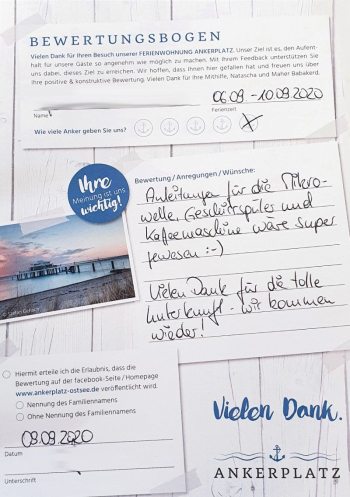 BEWERTUNGSBOGEN
Vielen Dank für Ihren Besuch unserer FERIENWOHNUNG ANKERPLATZ. Unser Ziel ist es, den Aufent-
halt für unsere Gäste so angenehm wie möglich zu machen. Mit Ihrem Feedback unterstützen Sie
uns dabei, dieses Ziel zu erreichen. Wir hoffen, dass Ihnen hier gefallen hat und freuen uns über
Ihre positive & konstruktive Bewertung. Vielen Dank für Ihre Mithilfe, Natascha und Maher Babakerd.
06.09 - 10.09.2020
Name
Ferienzeit
Wie viele Anker geben Sie uns?
Ihre
Meinung ist uns
wichtig!
Bewertung / Anregungen / Wünsche:
Anleitungen für die Mikro-
welle, Geschirrspüler und
Kaffeemaschine wäre super
gewesen :-)
Vielen Dank für die tolle
Unterkunft - wir kommen
wieder!
© Stefan Gerlach
Hiermit erteile ich die Erlaubnis, dass die
Bewertung auf der facebook-Seite / Homepage
www.ankerplatz-ostsee.de veröffentlicht wird.
Nennung des Familiennamens
Ohne Nennung des Familiennamens
09.09.2020
Datum
Unterschrift
Vielen Dank.
ANKERPLATZ